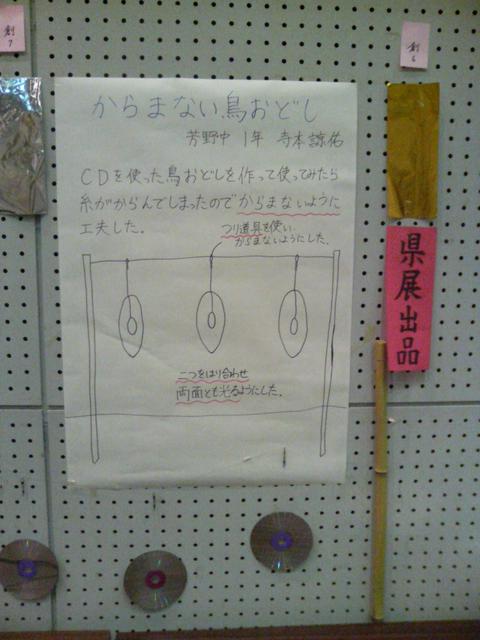 創
7
創
6
からまない鳥おどし
芳野中 1年 寺本諒佑
CDを使った鳥おどしを作って使ってみたら
糸がからんでしまったのでからまないように
工夫した。
つり道具を使い
からまないようにした。
二つをはり合わせ
両面とも光るようにした。
県展出品